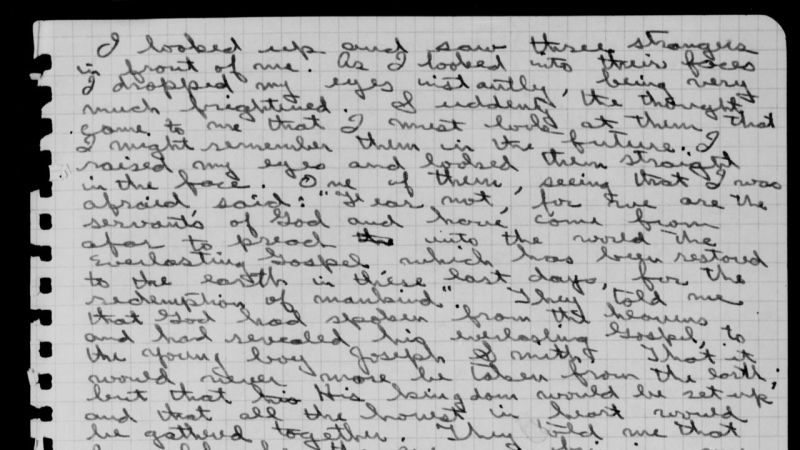 I looked up and saw three strangers
in front of me. As I looked into their faces
I dropped my eyes instantly, being very
much frightened. Suddenly the thought
came to me that I must look at them that
I might remember them in the future. I
raised my eyes and looked them straight
in the face. One of them, seeing that I was
afraid, said: "Fear not, for we are the
servants of God and have come from
afar to preach unto the world the
everlasting Gospel which has been restored
to the earth in these last days, for the
redemption of mankind". They told me
that God had spoken from the heavens
and had revealed his everlasting Gospel, to
the young boy Joseph Smith. That it
would never more be taken from the earth;
but that His kingdom would be set up
and that all the honest in heart would
be gathered together. They told me that